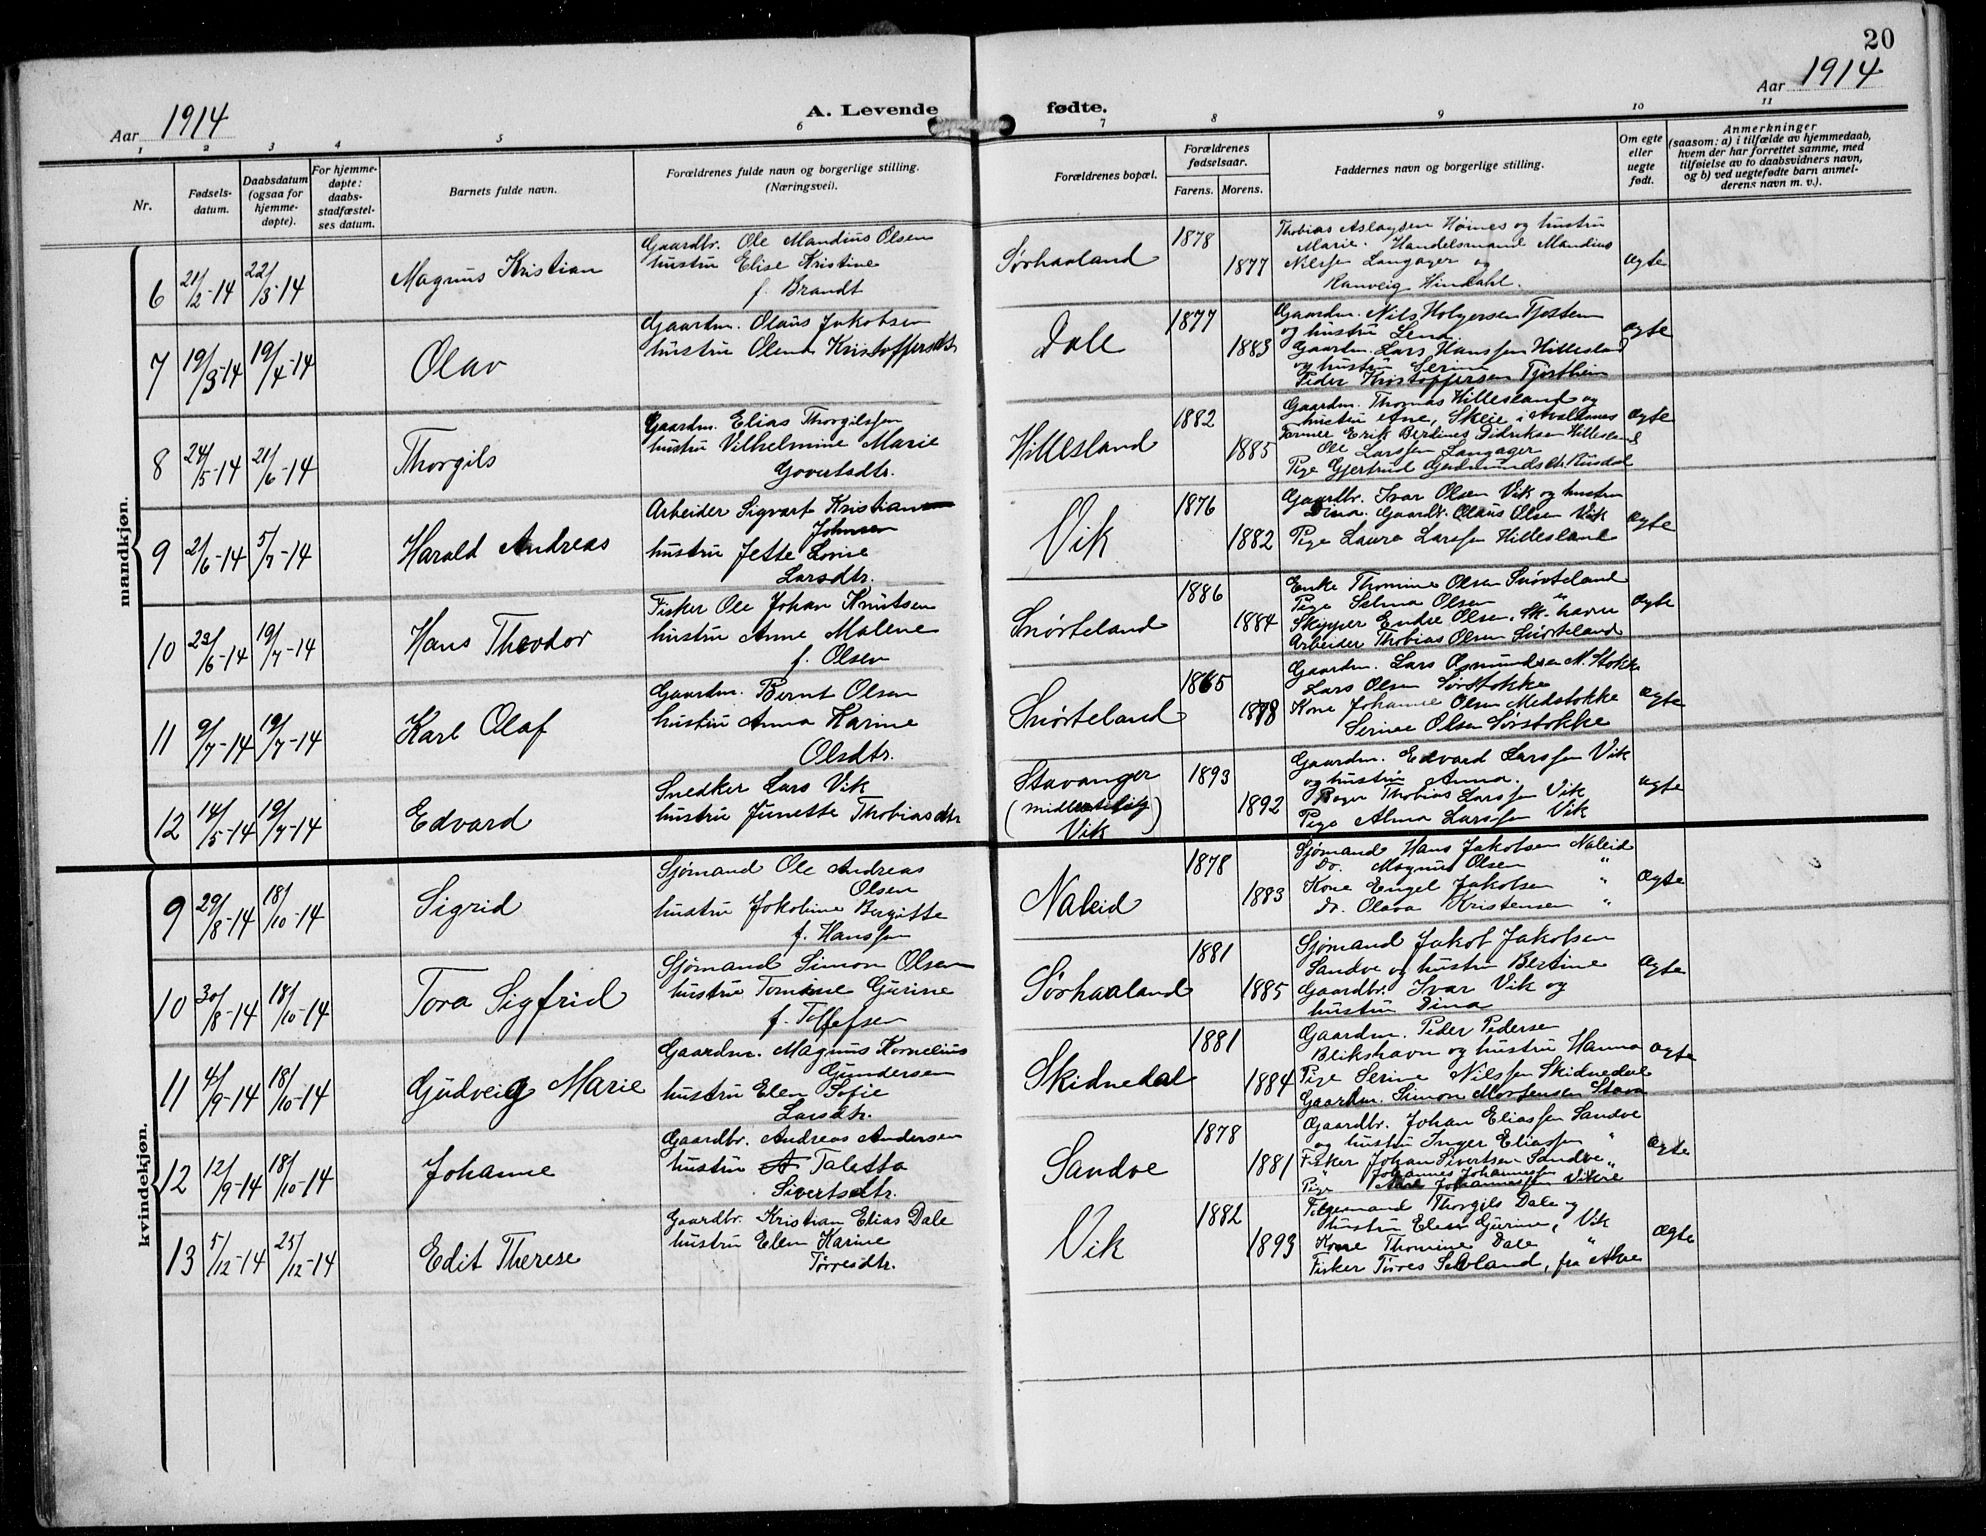 20
Aar 1914
A. Levende fødte.
Aar 1914
1 2 3 4 5 6 7 8 9 10 11
Nr.
Fødsels-
datum.
Daabsdatum
(ogsaa for
hjemme-
døpte).
For hjemme-
døpte:
daabs-
stadfæstel-
ses datum.
Barnets fulde navn.
Forældrenes fulde navn og borgerlige stilling.
(Næringsvei).
Forældrenes bopæl.
Forældrenes
fødselsaar.
Farens. Morens.
Faddernes navn og borgerlige stilling.
Om egte
eller
uegte
født.
Anmerkninger
(saasom: a) i tilfælde av hjemmedaab,
hvem der har forrettet samme, med
tilføielse av to daabsvidners navn,
og b) ved uegtefødte barn anmel-
derens navn m. v.).
mandkjøn.
6 21/2-14 22/3-14 Magnus Kristian
Gaardbr. Ole Mandius Olsen
hustru Elise Kristine
f. Brandt
Sørhaaland 1878 1877
Thobias Aslagsen Høines og hustru
Marie. Handelsmand Mandius
Nilssen Langager og
Ranveig Hindahl.
ægte
7 19/3-14 19/4-14 Olav
Gaardm. Olaus Jakobsen
hustru Olena Kristoffersdtr
Dale 1877 1883
Gaardm. Nils Holgersen Tjostem
og hustru Lena
Gaardm. Lars Hanssen Hillesland
og hustru Serine
Peder Kristoffersen Tjøstheim
ægte
8 24/5-14 21/6-14 Thorgils
Gaardm. Elias Thorgilssen
hustru Vilhelmine Marie
Govertsdtr.
Hillesland 1882 1885
Gaardm. Thomas Hillesland og
hustru Ane, Skeie i Avaldsnes
Erik Berdines Didriksen Hillesland
Ole Larssen Langager
Pige Gjertrud
ægte
9 2/6-14 5/7-14 Harald Andreas
Arbeider Sigvart Kristian
Johnsen
hustru Jette Lovise
Larsdtr.
Vik 1876 1882
Gaardbr. Ivar Olsen Vik og hustru
Dina. Gaardbr. Olaus Olsen Vik
Pige Laura Larssen Hillesland
ægte
10 23/6-14 19/7-14 Hans Theodor
Fisker Ole Johan Knutsen
hustru Anne Malene
f. Olsen
Snørteland 1886 1884
Enke Thomine Olsen Snørteland
Pige Salma Olsen "
Skipper Endre Olsen, Sk. havn
Arbeider Thobias Olsen Snørteland
ægte
11 9/7-14 19/7-14 Karl Olaf
Gaardm. Bernt Olsen
hustru Anna Karine
Olsdtr.
Snørteland 1865 1878
Gaardm. Lars Asmundsen N. Stokke
Lars Olsen Sørstokke
Kone Johanne Olsen Medstokke
Serine Olsen Sørstokke
ægte
12 14/5-14 19/7-14 Edvard
Snedker Lars Vik
hustru Junette Thobiasdtr
Stavanger
(midlertidig
Vik) 1893 1892
Gaardm. Edvard Larssen Vik
og hustru Anna.
Thobias Larssen Vik
Pige Alma Larssen Vik
ægte
kvindekjøn.
9 29/8-14 18/10-14 Sigrid
Sjømand Ole Andreas
Olsen
hustru Jakobine Bergitte
f. Hanssen
Naleid 1878 1883
Sjømand Hans Jakobsen Naleid
Do. Magnus Olsen "
Kone Engel Jakobsen "
do. Olava Kristensen "
ægte
10 30/8-14 18/10-14 Tora Sigfrid
Sjømand Simon Olsen
hustru Tomine Gurine
f. Tollefsen
Sørhaaland 1881 1885
Sjømand Jakob Jakobsen
Sandve og hustru Bertine
Gaardbr. Ivar Vik og
hustru Dina
ægte
11 4/9-14 18/10-14 Gudveig Marie
Gaardm. Magnus Kornelius
Gundersen
hustru Elen Sofie
Larsdtr.
Skidnedal 1881 1884
Gaardm. Peder Pedersen
Blikshavn og hustru Hanna
Pige Serine Nilssen Skidnedal
Gaardm. Simon Mortensen Stava
ægte
12 12/9-14 18/10-14 Johanne
Gaardbr. Andreas Andersen
hustru Taletta
Sivertsdtr.
Sandve 1878 1881
Gaardbr. Johan Eliassen Sandve
og hustru Inger Eliassen "
Fisker Johan Sivertsen Sandve
" Johannes Johannessen "
Pige Johannessen Vikre
ægte
13 5/12-14 25/12-14 Edit Therese
Gaardbr. Kristian Elias Dale
hustru Elen Karine
Tørresdtr.
Vik 1882 1893
Thorgils Dale og
hustru Elen Gurine, Vik
Kone Thomine Dale "
Fisker Tørres Sæland, fra Akre
ægte